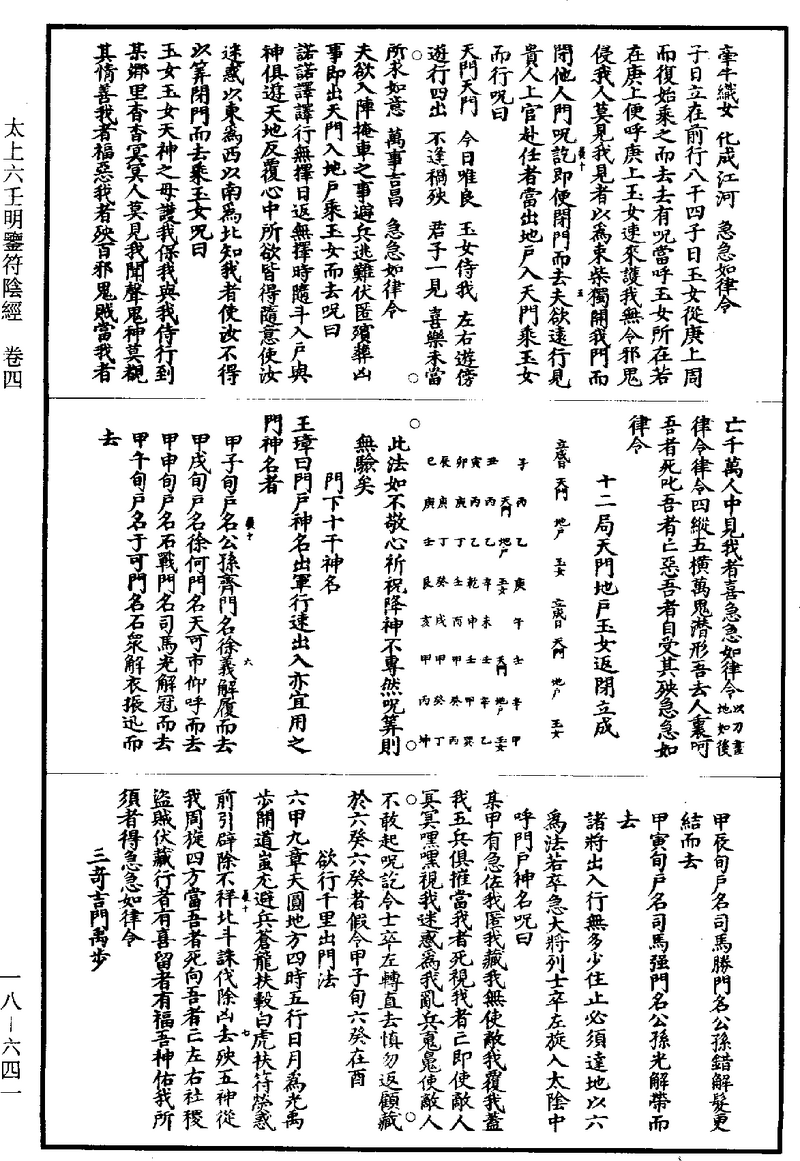 牽牛織女　化成江河　急急如律令
子日立在前行八干四子日玉女從庚上周
而復始乘之而去去有呪當呼玉女所在若
在庚上便呼庚上玉女速來護我無令邪鬼
侵我人莫見我見者以爲束柴獨開我門而
閉他人門呪訖即便閉門而去夫欲遠行見
貴人上官赴任者當出地戶入天門乘玉女
而行呪曰
天門天門　今日唯良　玉女侍我　左右遊傍
遊行四出　不逢禍殃　君子一見　喜樂未當
所求如意　萬事吉昌　急急如律令
夫欲入陣掩車之事避兵逃難伏匿殯葬凶
事即出天門入地戶乘玉女而去呪曰
諾諾譯譯行無擇日返無擇時隨斗入戶與
神俱遊天地反覆心中所欲皆得隨意使汝
迷惑以東爲西以南爲北知我者使汝不得
以筭閉門而去乘玉女呪曰
玉女玉女天神之母護我保我與我侍行到
某鄉里杳杳冥冥人莫見我聞聲鬼神莫覩
其情善我者福惡我者殃百邪鬼賊當我者
亡千萬人中見我者喜急急如律令以刀畫地如後
律令律令四縱五橫萬鬼潛形吾去人裏呵
吾者死叱吾者亡惡吾者自受其殃急急如
律令
十二局天門地戶玉女返閉立成
立成日　天門　地戶　玉女　立成日　天門　地戶　玉女
子　丙　乙　庚　午　壬　辛　甲
丑　丙　乙　辛　未　壬　辛　乙
寅　丙　乙　乾　申　壬　甲　巽
卯　庚　丁　壬　酉　甲　癸　丙
辰　庚　丁　癸　戌　甲　癸　丁
巳　庚　壬　艮　亥　甲　丙　坤
此法如不敬心祈祝降神不專然呪筭則
無驗矣
門下十干神名
王璋曰門戶神名出軍行速出入亦宜用之
門神名者
甲子旬戶名公孫齊門名徐義解履而去
甲戌旬戶名徐何門名天可市仰呼而去
甲申旬戶名石戰門名司馬光解冠而去
甲午旬戶名子可門名石泉解衣振迅而
去
甲辰旬戶名司馬勝門名公孫錯解髮更
結而去
甲寅旬戶名司馬强門名公孫光解帶而
去
諸將出入行無多少住止必須達地以六
爲法若卒急大將列士卒左旋入太陰中
呼門戶神名呪曰
某甲有急佐我匿我藏我無使敵我覆我蓋
我五兵俱摧當我者死視我者亡即使敵人
冥冥嘿嘿視我迷惑爲我亂兵冕冕使敵人
不敢起呪訖令士卒左轉直去慎勿返顧藏
於六癸六癸者假令甲子旬六癸在酉
欲行千里出門法
六甲九章天圓地方四時五行日月爲光禹
步開道蚩尤避兵蒼龍扶轂白虎扶行熒惑
前引辟除不祥北斗誅伐除凶去殃五神從
我周旋四方當吾者死向吾者亡左右社稷
盜賊伏藏行者有喜留者有福吾神佑我所
須者得急急如律令
三奇吉門禹步
太上六壬明鑒符陰經　卷四
一八—六四一